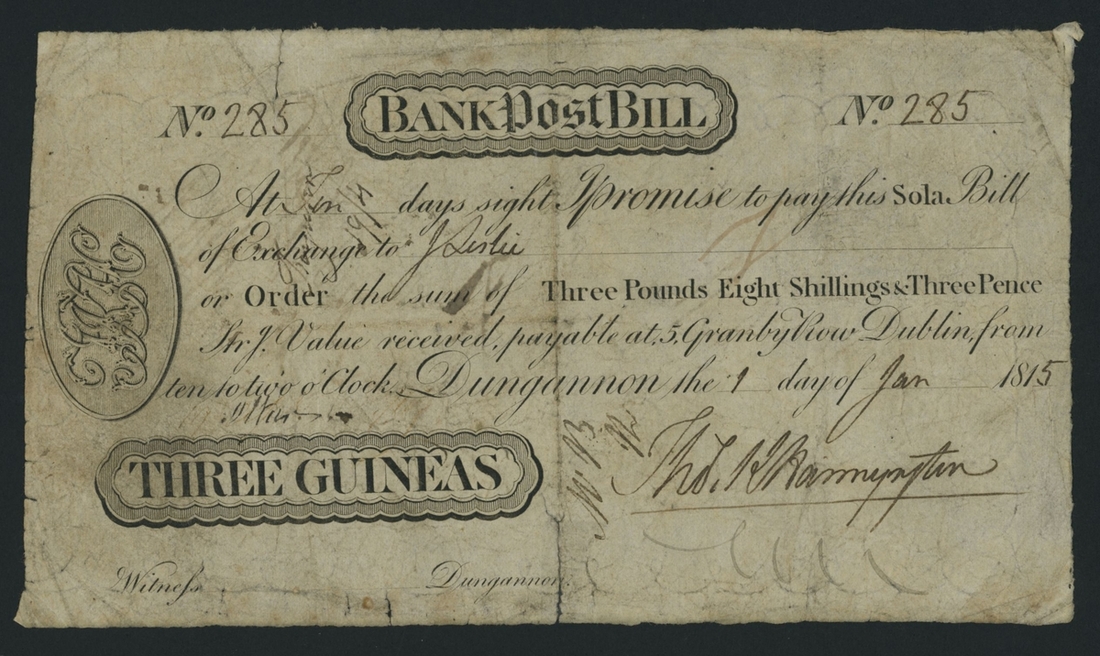 No. 285 BANK Post BILL No. 285
At Ten days sight I promise to pay this Sola Bill
of Exchange to J Leslie
or Order the sum of Three Pounds Eight Shillings & Three Pence
Str. J. Value received, payable at, 5, Granby Row Dublin, from
ten to two o'Clock. Dungannon the 1 day of Jan 1815
THREE GUINEAS
Witness Dungannon